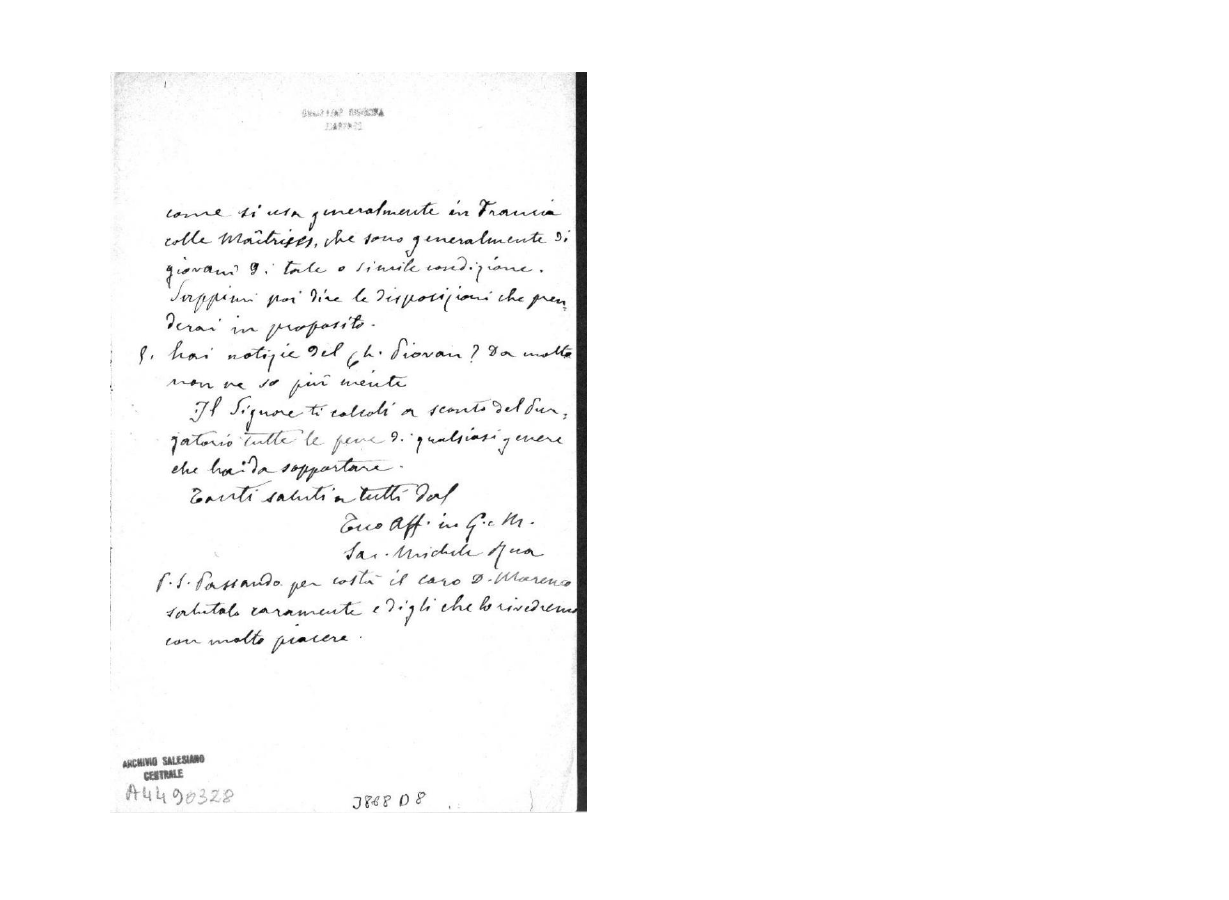 come si usa generalmente in Francia
colle Maîtrises, che sono generalmente di
giovani di tale o simile condizione.
Sappimi poi dire le disposizioni che pren=
derai in proposito.
hai notizie del Ch. Piovan? Da molto
non ne so più niente
Il Signore ti calcoli a sconto del Pur=
gatorio tutte le pene di qualsiasi genere
che hai da sopportare.
Tanti saluti a tutti dal
Tuo Aff. in G. e M.
Sac. Michele Rua
P.S. Passando per costà il caro D. Marenco
salutalo caramente e digli che lo rivedremo
con molto piacere.
ARCHIVIO SALESIANO
CENTRALE
A4490328
3868 D 8